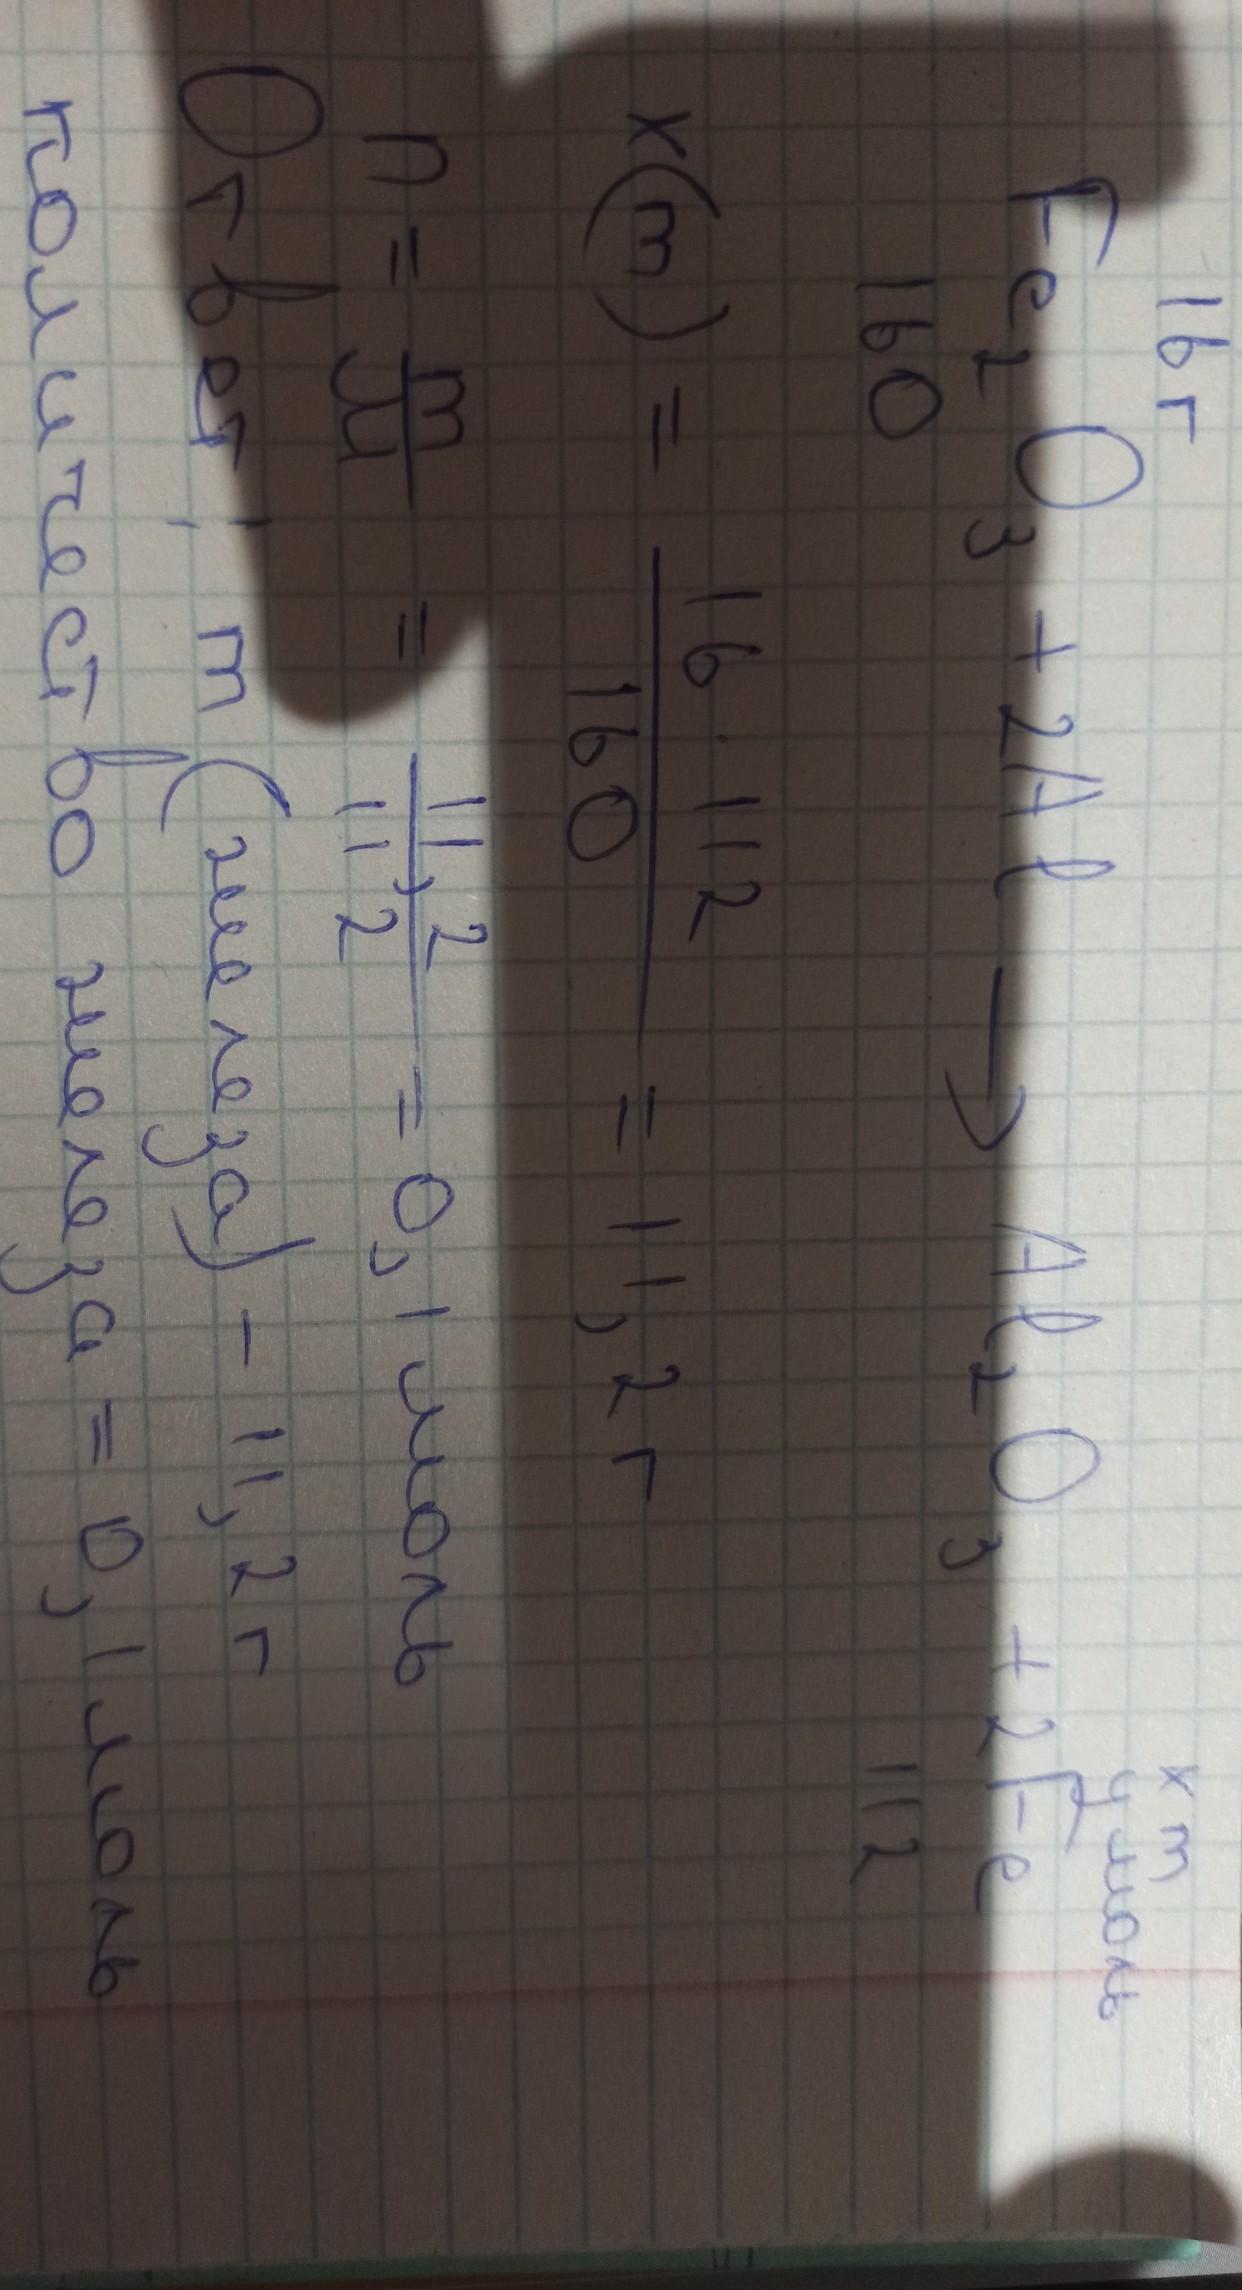 16 г x m
y моль
Fe₂O₃ + 2Al → Al₂O₃ + 2Fe
160 112
x(m) = 16 · 112 / 160 = 11,2 г
n = m / M = 11,2 / 112 = 0,1 моль
Ответ: m (железа) - 11,2 г
количество железа = 0,1 моль